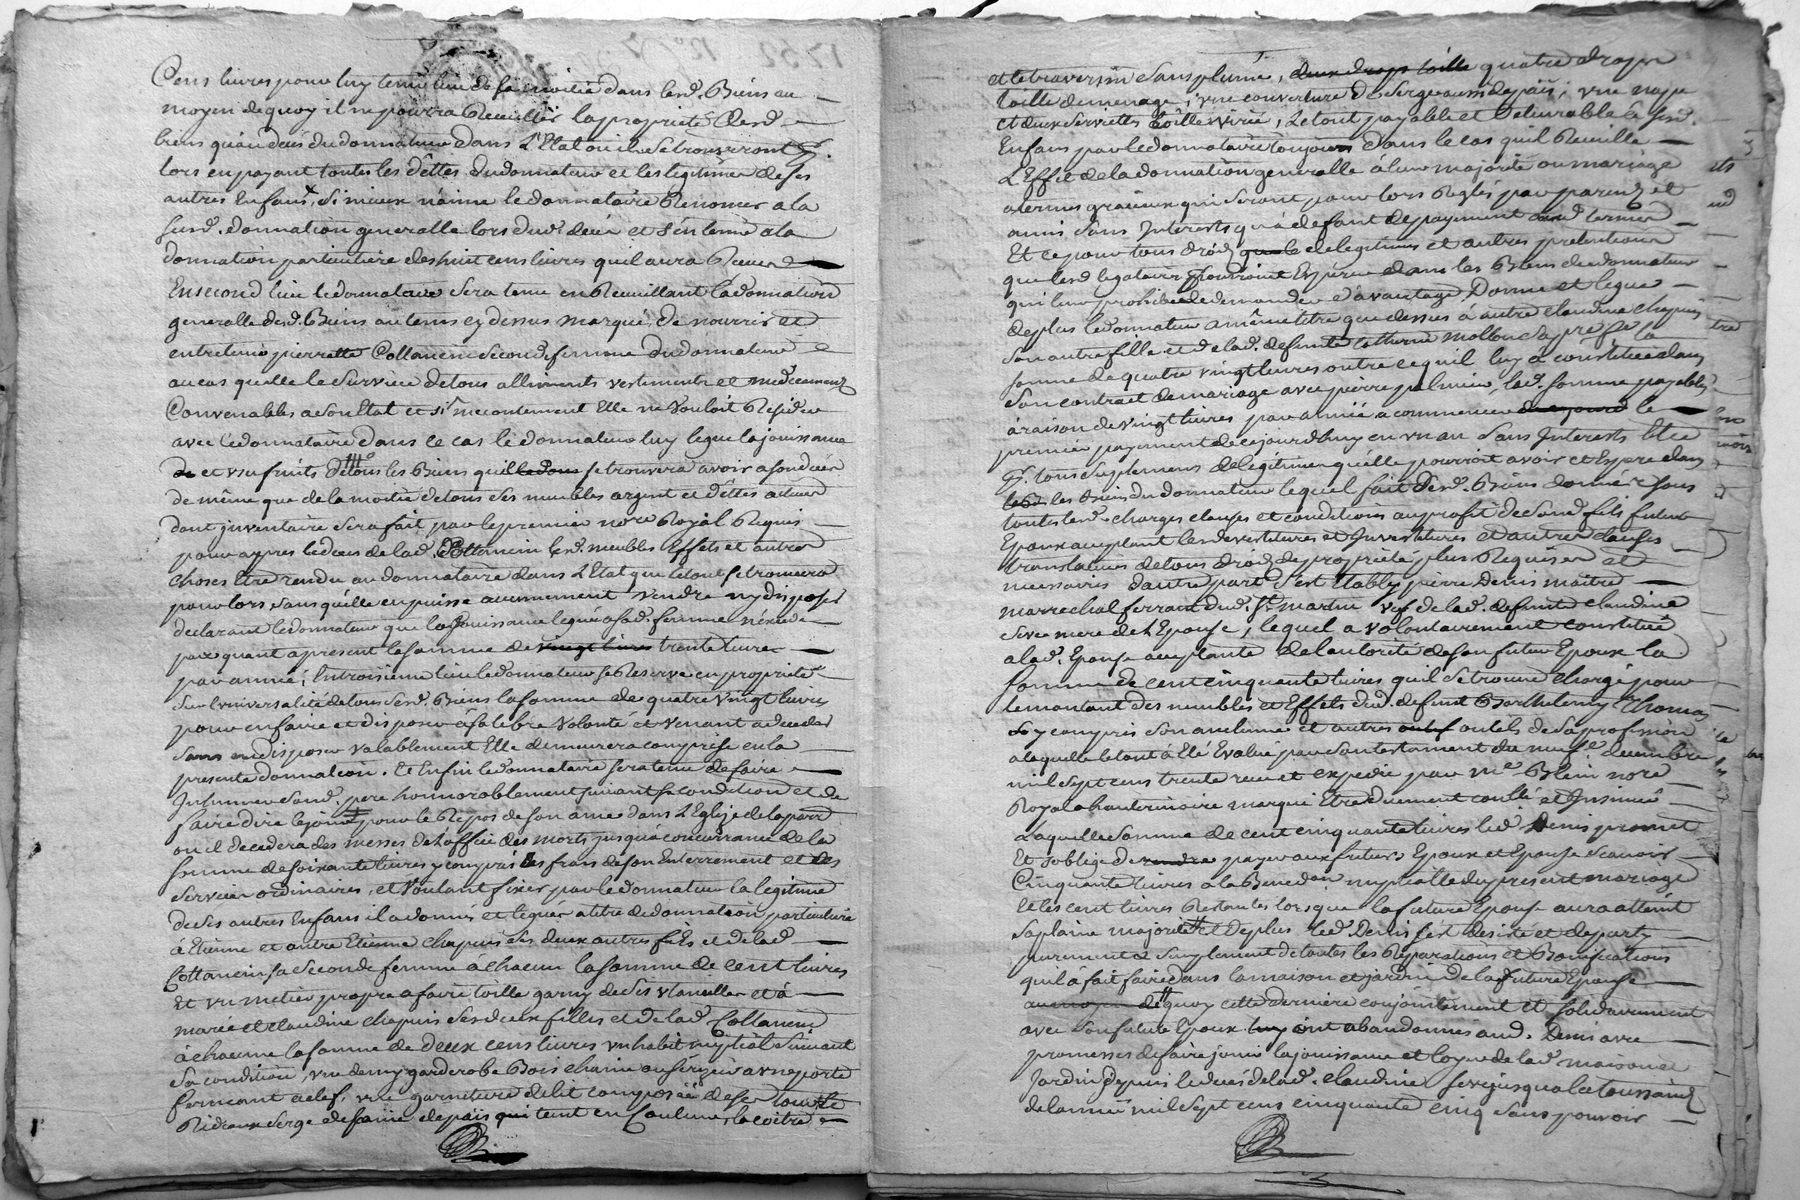 Cens livres pour luy tenir lieu de sa moitié dans lesd. Biens au
moyen de quoy il ne pourra Recueillir la proprieté desd.
biens qu'au deces du donnateur dans L'Etat ou ils se trouveront p.
lors en payant toutes les dettes du donnateur et les legitimes de ses
autres Enfans, si mieux n'aime le donnataire Renoncer a la
susd. donnation generalle lors dud. deces et s'en tenir a la
donnation particuliere des huit cens livres qu'il aura Receu
En second lieu le donnataire sera tenu en Recueillant la donnation
generalle desd. Biens au tems cy dessus marqué, de nourrir et
entretenir pierrette Cottancin seconde femme du donnateur
au cas quelle le survive de tous alliments vestements et medicaments
Convenables a son Etat et si mecontement Elle ne vouloit Resider
avec le donnataire dans ce cas le donnateur luy legue la jouissance
de et usufruits de tous les Biens quil se trouvera avoir a son deces
de même que de la moitié de tous ses meubles argent et dettes actives
dont jnventaire sera fait par le premier nore Royal Requis
pour apres le deces de lad. Cottancin lesd. meubles Effets et autres
choses Etre rendu au donnataire dans L'Etat que le tout se trouvera
pour lors sans quelle en puisse aucunement vendre ny disposer
declarant le donnateur que la jouissance leguée a sad. femme n'éxcede
pas quant a present la somme de vingt livres trente livres
par année; En troisieme lieu le donnateur se Reserve en proprieté
sur l'universalité de tous sesd. Biens la somme de quatre vingt livres
pour en faire et disposer a sa libre volonté et venant a deceder
sans en disposer valablement Elle demeurera comprise en la
presente donnation. Et Enfin le donnataire sera tenu de faire
Inhumer sond. pere honnorablement suivant sa condition et de
faire dire pour le Repos de son ame dans L'Eglise de la parr
ou il decedera des messes de l'office des morts jusqu'a concurrance de la
somme de soixante livres y compris les frais de son Enterrement et des
services ordinaires, et voulant fixer par le donnateur la legitime
de ses autres Enfans il a donné et legué a titre de donnation particuliere
à Etienne et autre Etienne chapuis ses deux autres fils et de lad.
Cottancin sa seconde femme à chacun la somme de cent livres
Et un metier propre a faire toille garny de ses ustancilles et à
marie et claudine chapuis ses deux filles et de lad. Cottancin
à chacune la somme de deux cens livres un habit nuptial suivant
sa condition, une demy garderobe Bois chaine ou serizier a une porte
fermant a clef, une garniture de lit composée de ses tour de
Rideaux serge de faine du païs qui teint en Couleur, la coitre
et le traversin sans plume, deux draps toille quatre draps
toille de menage, une couverture de serge aussi du païs, une nape
et deux serviettes toille uvrée, Le tout payable et delivrable a sesd.
Enfans par le donnataire toujours dans le cas qu'il Recueille
L'Effet de la donnation generalle à leur majorité ou mariage
a termes gracieux qui seront pour lors Reglés par parens et
amis sans Interests qu'a defaut de payement aud. termes
Et ce pour tous droits de legitimes et autres pretentions
que lesd. legataires pourroient Esperer dans les Biens du donnateur
qui leur prohibe de demander d'avantage, Donne et legue
de plus le donnateur a même titre que dessus a autre claudine chapuis
son autre fille et de lad. defunte Catherine mollon sa pre fe la
somme de quatre vingt livres outre ce qu'il luy a constitué dans
son contract de mariage avec pierre palmier, lad. somme payable
a raison de vingt livres par année a commencer de cejourd le
premier payement de cejourd'huy en un an sans Interests Et ce
p. tous suplemens de legitime quelle pourroit avoir et Esperer dans
les Biens du donnateur lequel fait desd. Biens donnés sous
toutes lesd. charges clauses et conditions au profit de sond. fils futur
Epoux acceptant les devestitures et Investitures et autres clauses
translatives de tous droits de proprieté, plus Requises et
necessaires d'autre part s'est Etably pierre denis maitre
marrechal ferrant dud. St. martin vef de lad. defunte claudine
seve mere de L'Epouse, lequel a volontairement constitué
a lad. Epouse acceptante de l'autorité de son futur Epoux la
somme de cent cinquante livres qu'il se trouve chargé pour
le montant des meubles et Effets dud. defunt Barthelemy thomas
y compris son anclume et autres outils de sa profession
a laquelle le tout à Eté Evalué par son testament du neufe decembre
mil sept cens trente receu et expedié par me Blein nore
Royal a hauterivoire marqué Etre duement conllé et Insinué
Laquelle somme de cent cinquante livres led. denis promet
Et s'oblige de rendre payer aux futurs Epoux et Epouse scavoir
Cinquante livres a la Bened.on nuptialle du present mariage
Et les cent livres Restantes lorsque la future Epouse aura atteint
sa plaine majorité Et de plus led. denis s'est desisté et departy
purement et simplement de toutes les Réparations et Bonifications
qu'il à fait faire dans la maison et jardin de la future Epouse
au moyen de quoy cette derniere conjointement et solidairement
avec son futur Epoux luy ont abandonnés aud. Denis avec
promesses de faire jouir la jouissance et loyer de lad. maison et
Jardin depuis le deces de lad. claudine seve jusqu'a la toussaint
de l'année mil sept cens cinquante cinq sans pouvoir